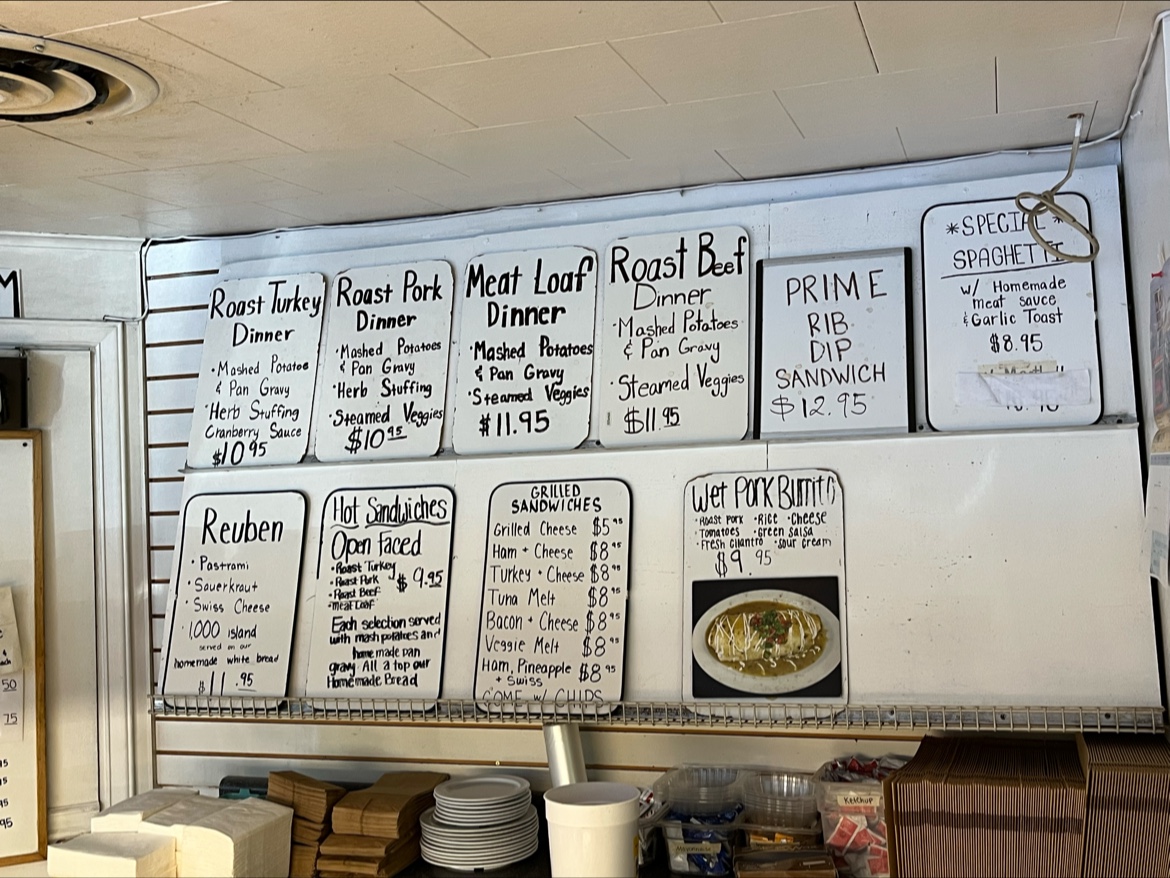 M
Roast Turkey
Dinner
• Mashed Potatoe
& Pan Gravy
• Herb Stuffing
Cranberry Sauce
$10 95
Roast Pork
Dinner
• Mashed Potatoes
& Pan Gravy
• Herb Stuffing
• Steamed Veggies
$10 95
Meat Loaf
Dinner
• Mashed Potatoes
& Pan Gravy
• Steamed Veggies
$11.95
Roast Beef
Dinner
• Mashed Potatoes
& Pan Gravy
• Steamed Veggies
$11.95
PRIME
RIB
DIP
SANDWICH
$12.95
*SPECIAL*
SPAGHETTI
w/ Homemade
meat sauce
& Garlic Toast
$8.95
Reuben
• Pastrami
• Sauerkraut
• Swiss Cheese
• 1,000 island
served on our
homemade white bread
$11.95
Hot Sandwiches
Open Faced
• Roast Turkey
• Roast Pork
• Roast Beef
• Meat Loaf
$9.95
Each selection served
with mash potatoes and
home made pan
gravy All a top our
Homemade Bread
GRILLED
SANDWICHES
Grilled Cheese $5 95
Ham + Cheese $8 95
Turkey + Cheese $8 95
Tuna Melt $8 95
Bacon + Cheese $8 95
Veggie Melt $8 95
Ham, Pineapple $8 95
+ Swiss
COME w/ CHIPS
Wet Pork Burrito
• Roast Pork • Rice • Cheese
• Tomatoes • Green Salsa
• Fresh Cilantro • Sour Cream
$9.95
50
75
95
KETCHUP